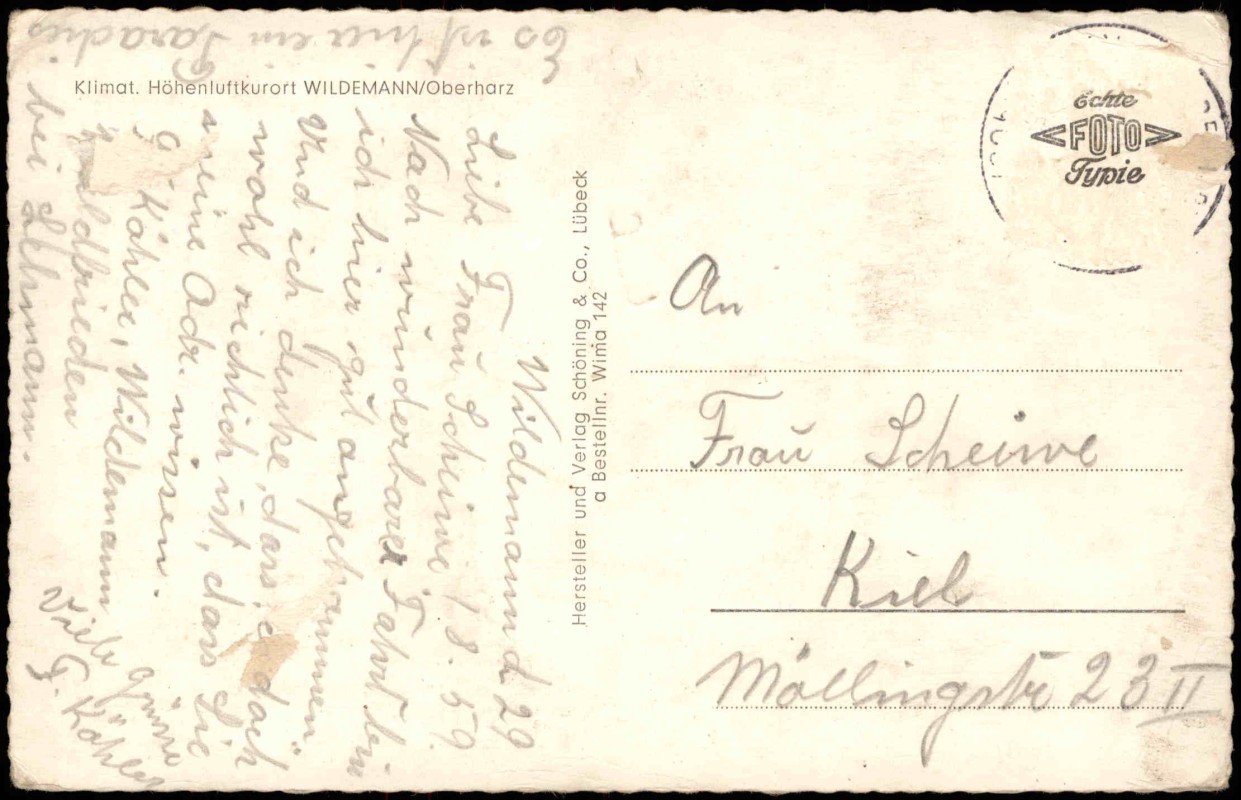 Klimat. Höhenluftkurort WILDEMANN/Oberharz
Wildemann d 29
8. 59.
Liebe Frau Scheiwe!
Nach wunderbarer Fahrt bin
ich hier gut angekommen.
Und ich denke, dass doch
wohl richtich ist, dass Sie
meine Adr. wissen.
G. Köhler, Wildemann
bei Lehmann.
Viele Grüsse
G. Köhler
Es ist hier ein Paradies
Hersteller und Verlag Schöning & Co., Lübeck
a Bestellnr. Wima 142
Echte
<FOTO>
Typie
An
Frau Scheiwe
Kiel
Möllingstr 23 II